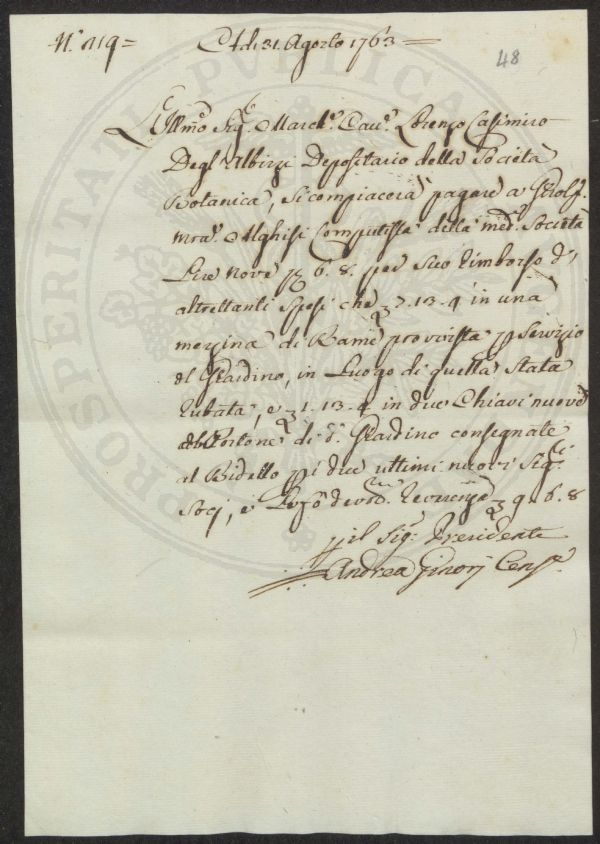 N.° 119= Adi 31. Agosto 1763 =
48
L'Ill:mo Sig.e March.e Cav.e Lorenzo Casimiro
Degl'Albizi Depositario della Società
Botanica, si compiacerà pagare a
Ghisi Computista della med.a Società
Lire nove 6. 8. per suo rimborso d'
altrettanti spesi che 7. 13. 4 in una
mezzina di Rame provvista p servizio
del Giardino, in luogo di quella stata
rubata, e 1. 13. 4 in due Chiavi nuove
del Portone di d.° Giardino consegnate
al Bidello p i due ultimi nuovi Sig.ri
Socj, e reverenza 9. 6. 8
p il Sig.e Presidente
Andrea Ginori Cens.e
PROSPERITATI PUBLICAE